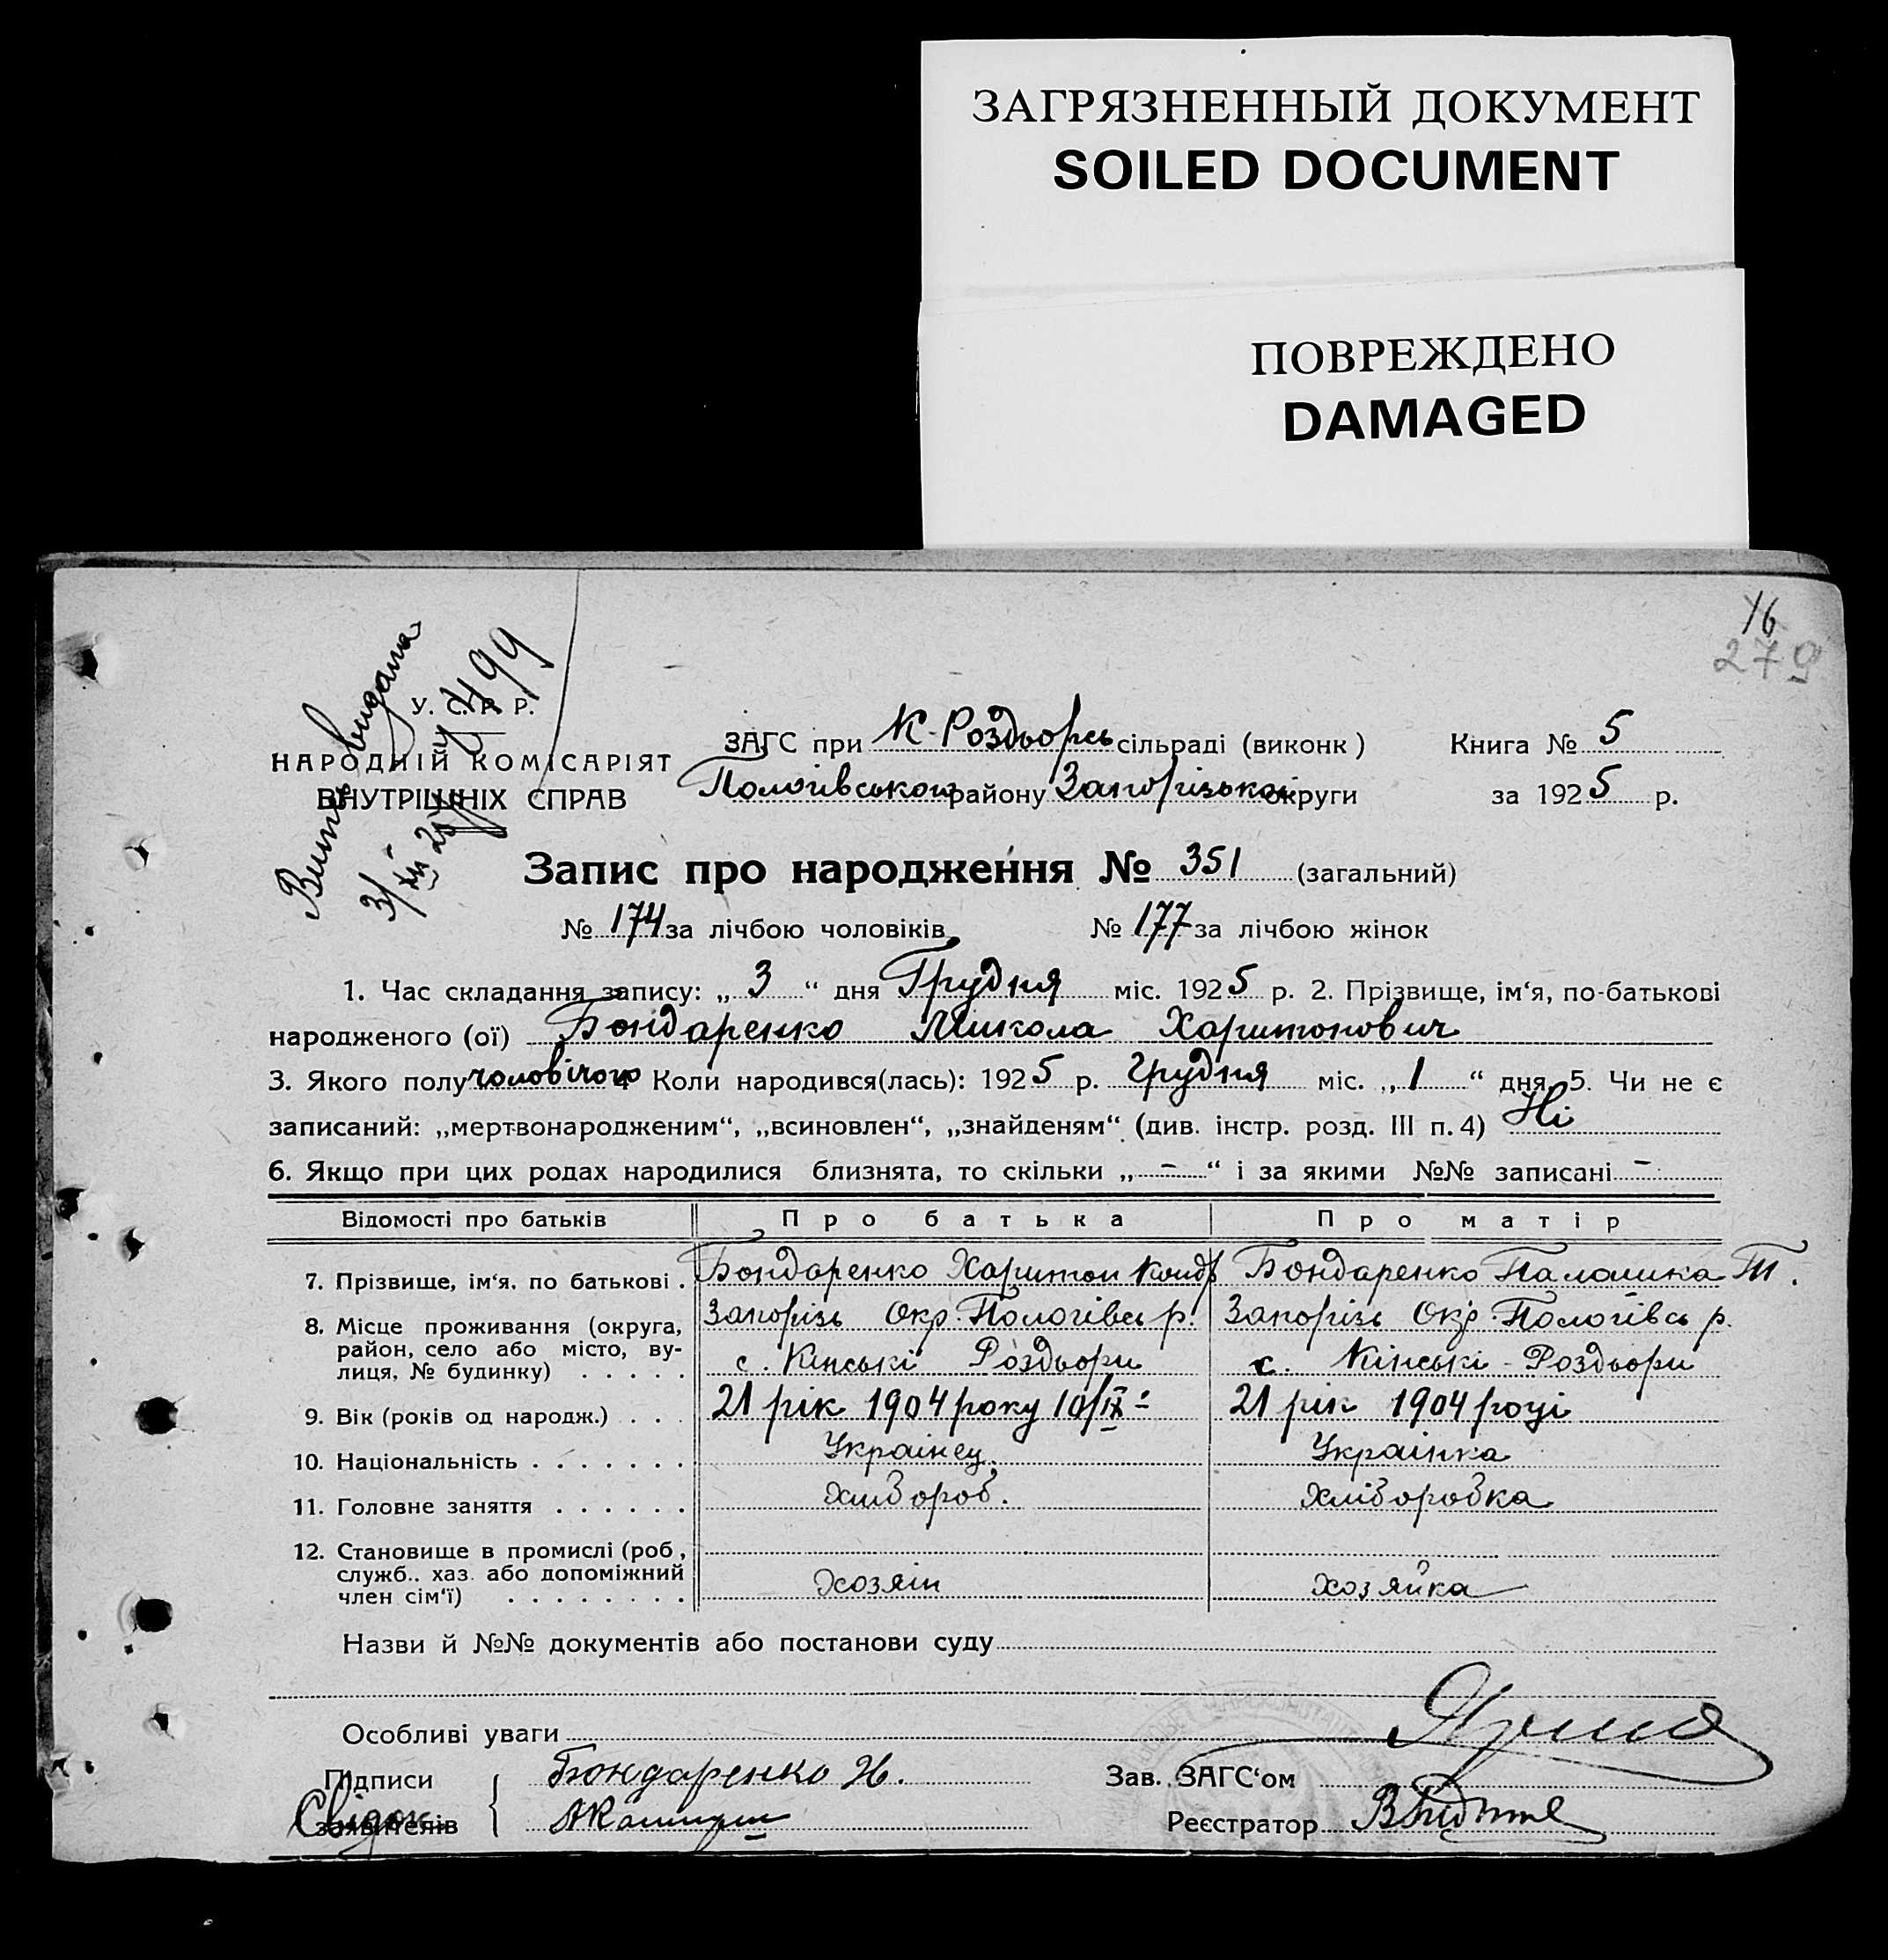 ЗАГРЯЗНЕННЫЙ ДОКУМЕНТ
SOILED DOCUMENT
ПОВРЕЖДЕНО
DAMAGED
16
279
Витяг видана
3/XII 25
499
У. С. Р. Р.
НАРОДНІЙ КОМІСАРІЯТ
ВНУТРІШНІХ СПРАВ
ЗАГС при К-Роздорсь сільраді (виконк) Книга № 5
Пологівського району Запорізької округи за 1925 р.
Запис про народження № 351 (загальний)
№ 174 за лічбою чоловіків № 177 за лічбою жінок
1. Час складання запису: „ 3 “ дня Грудня міс. 1925 р. 2. Прізвище, ім‘я, по-батькові
народженого (ої) Бондаренко Микола Харитонович
3. Якого полу чоловічого 4 Коли народився(лась): 1925 р. Грудня міс. „ 1 “ дня 5. Чи не є
записаний: „мертвонародженим“, „всиновлен“, „знайденям“ (див. інстр. розд. III п. 4) Ні
6. Якщо при цих родах народилися близнята, то скільки „ - “ і за якими №№ записані -
Відомості про батьків Про батька Про матір
7. Прізвище, ім‘я, по батькові . Бондаренко Харитон Конд Бондаренко
8. Місце проживання (округа, Запорізь Окр. Пологівсь р. Запорізь Окр. Пологівсь р.
район, село або місто, ву-
лиця, № будинку) . . . . . с. Кінські Роздьори с. Кінські-Роздьори
9. Вік (років од народж.) . . . 21 рік 1904 року 10/IX 21 рік 1904 році
10. Національність . . . . . . . Украінец Украінка
11. Головне заняття . . . . . . Хлібороб. Хліборобка
12. Становище в промислі (роб,
служб.. хаз. або допоміжний Хозяін Хозяйка
член сім‘ї) . . . . . . . .
Назви й №№ документів або постанови суду
Особливі уваги
Підписи Бондаренко Н. Зав. ЗАГС‘ом
Свідок
заявителів Реєстратор